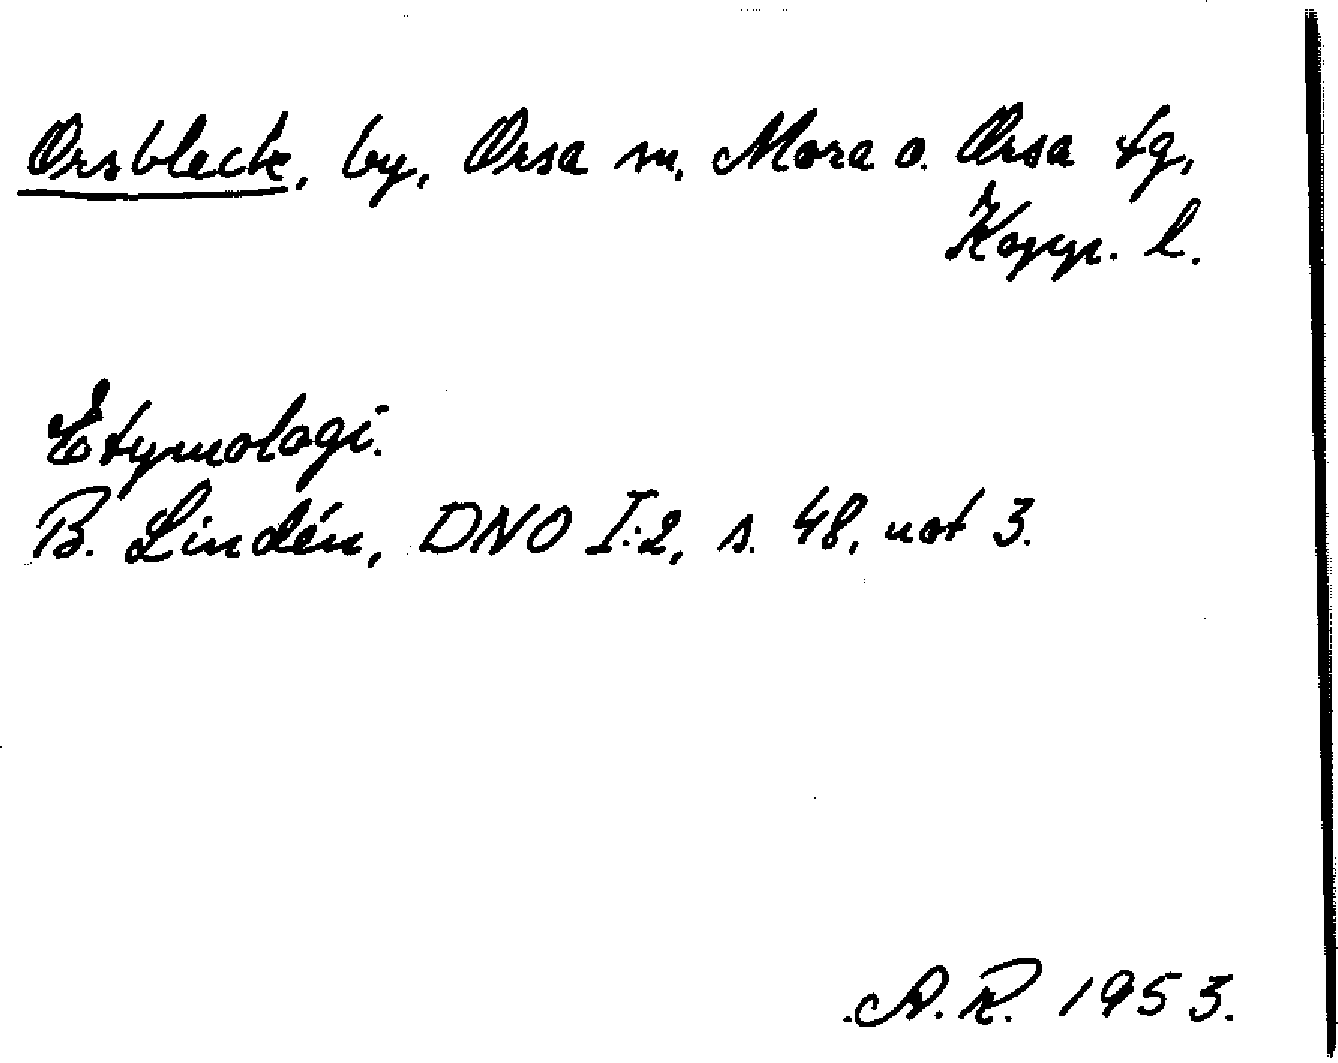 Orsbleck, by, Orsa sn, Mora o. Orsa tg,
Kopp. l.
Etymologi.
B. Lindén, DNO I:2, s. 48, not 3.
A.R. 1953.